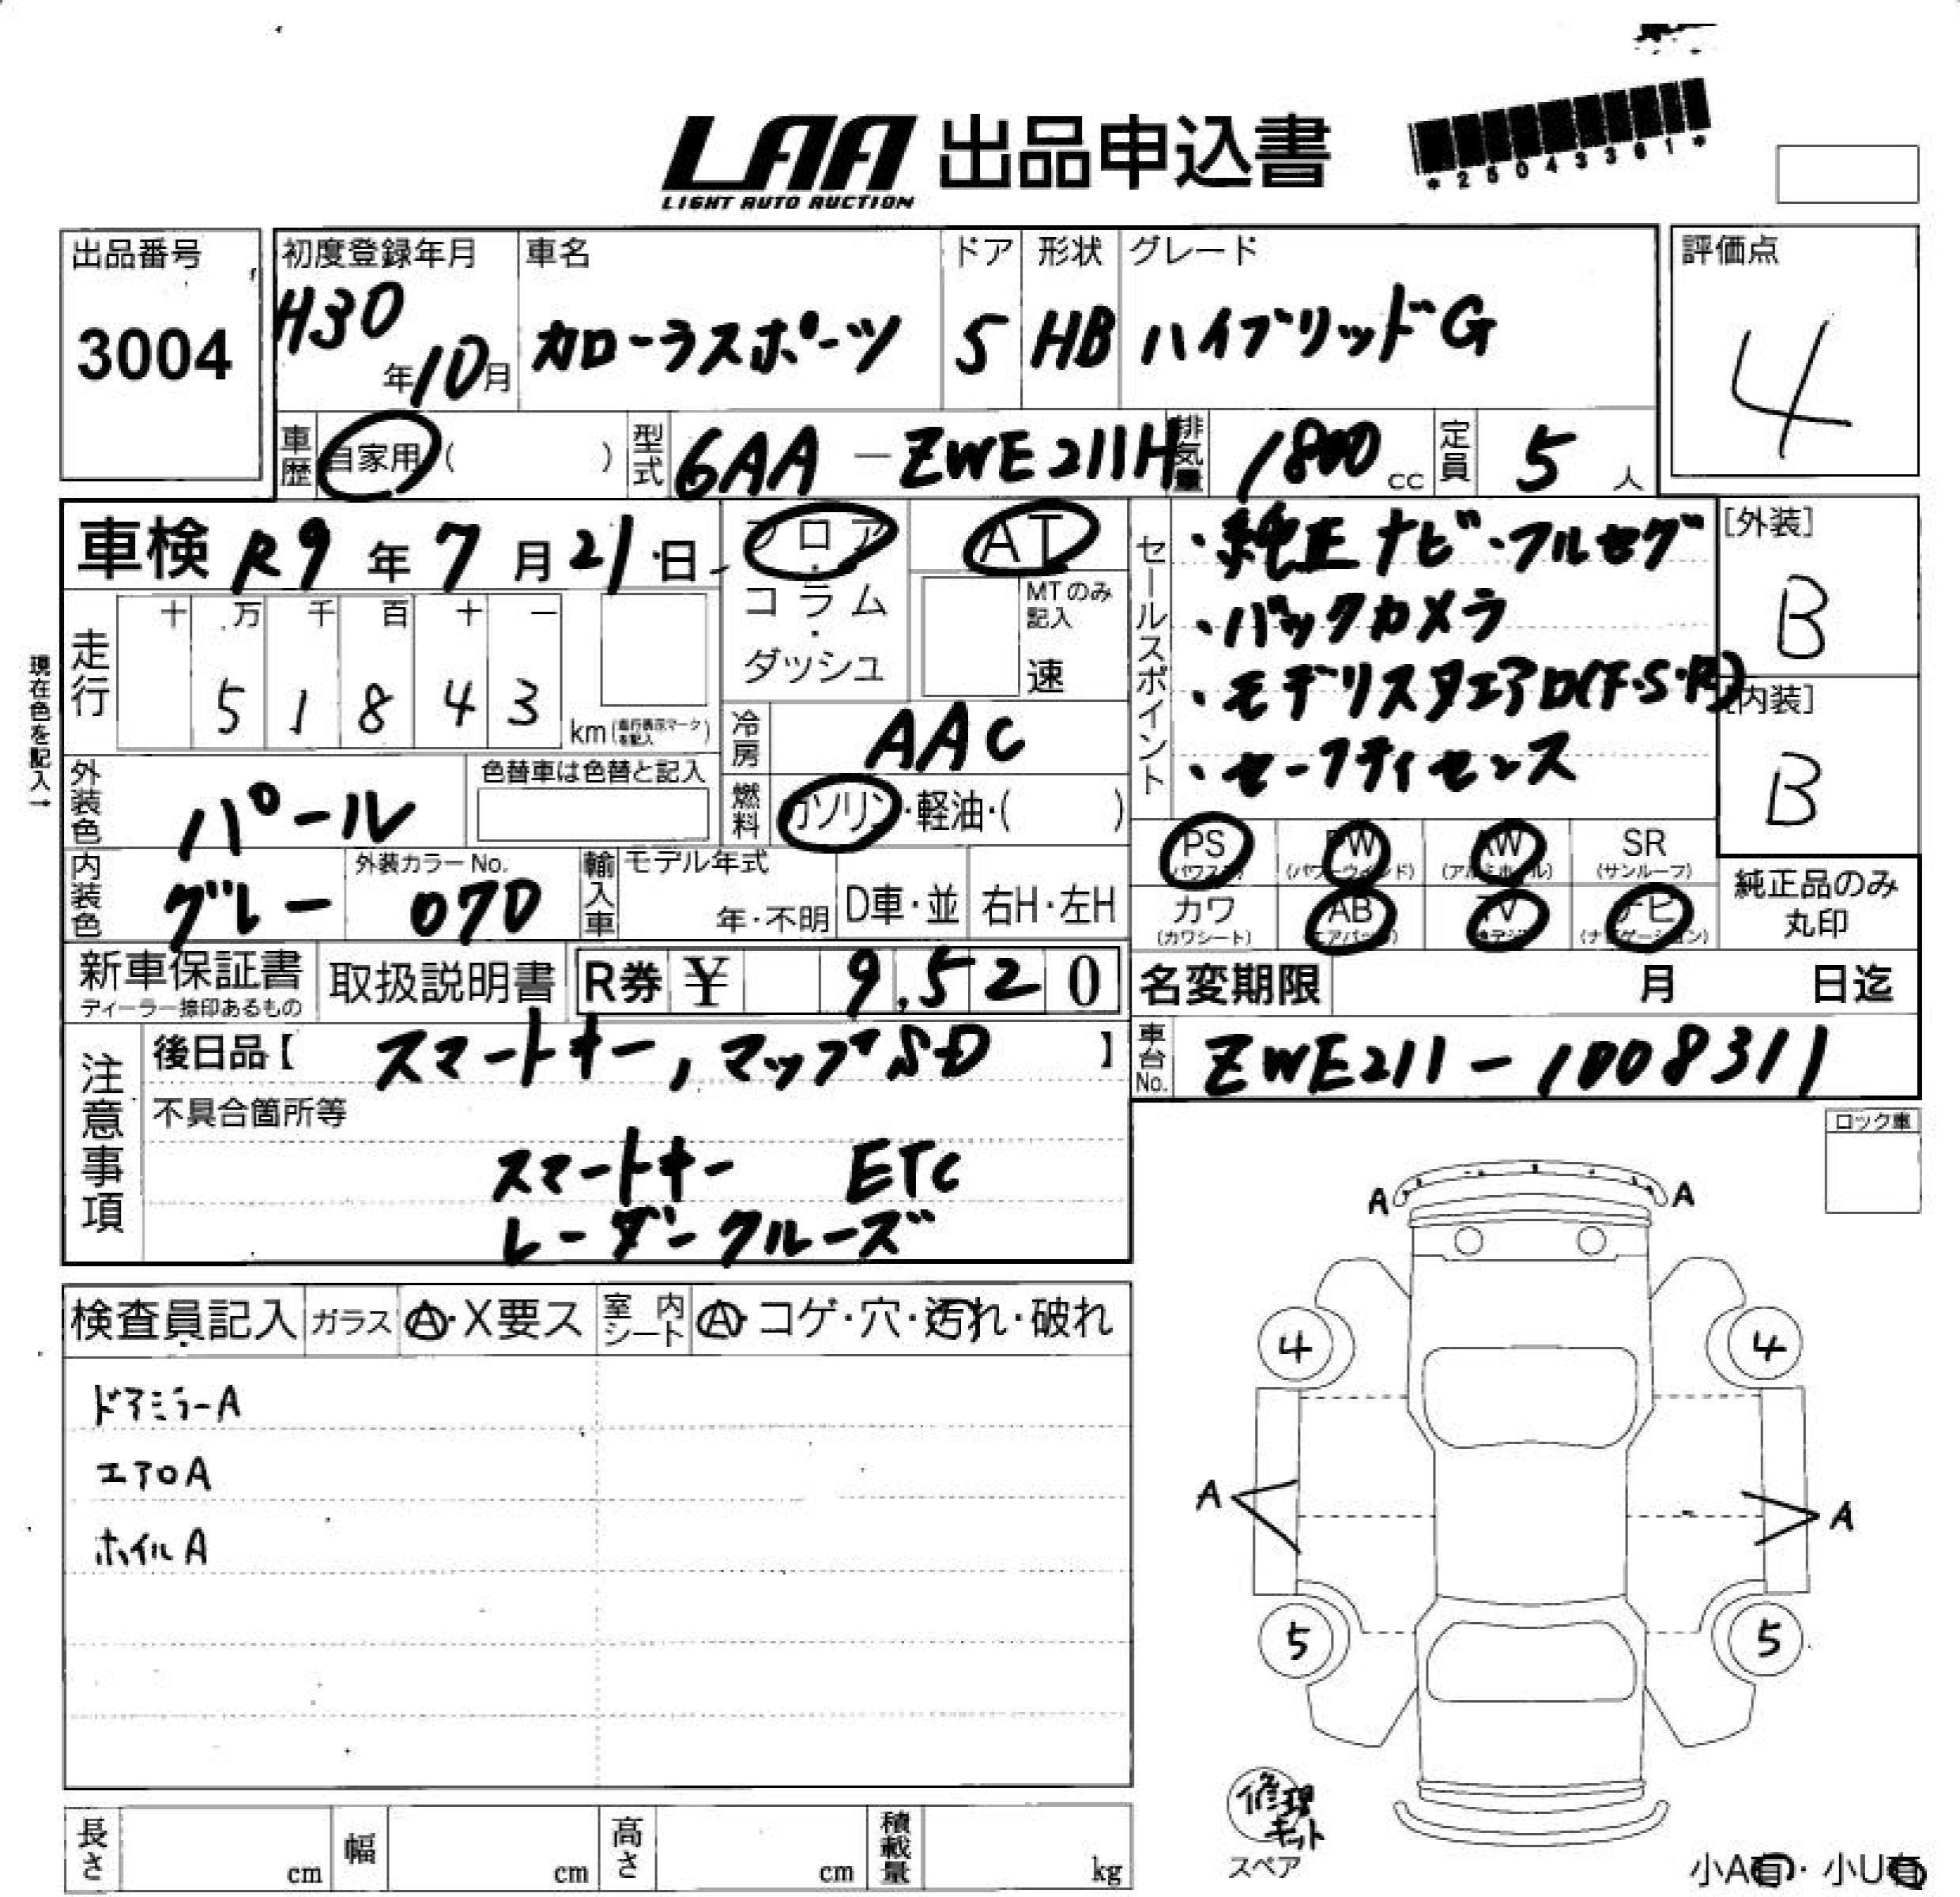 LAA 出品申込書
LIGHT AUTO AUCTION
*25043361*
出品番号
3004
初度登録年月
H30年10月
車名
カローラスポーツ
ドア
5
形状
HB
グレード
ハイブリッドG
評価点
4
車歴
自家用( )
型式
6AA-ZWE211H
排気量
1800cc
定員
5人
車検 R9年7月21日
フロア・コラム・ダッシュ
AT
MTのみ記入
速
セールスポイント
・純正ナビ・フルセグ
・バックカメラ
・モデリスタエアロ(F・S・R)
・セーフティセンス
[外装]
B
[内装]
B
現在色を記入→
走行
十 万 千 百 十 一
5 1 8 4 3
km(走行表示マークを記入)
冷房
AAC
外装色
パール
色替車は色替と記入
燃料
ガソリン・軽油・( )
内装色
グレー
外装カラーNo.
070
輸入車
モデル年式
年・不明
D車・並
右H・左H
PS
(パワステ)
PW
(パワーウィンド)
AW
(アルミホイル)
SR
(サンルーフ)
カワ
(カワシート)
AB
(エアバッグ)
TV
ナビ
(ナビゲーション)
純正品のみ丸印
新車保証書
ディーラー捺印あるもの
取扱説明書
R券 ¥ 9,520
名変期限 月 日迄
注意事項
後日品【 スマートキー, マップSD 】
車台No.
ZWE211-1008311
不具合箇所等
スマートキー ETC
レーダークルーズ
ロック車
検査員記入
ガラス
A・X要ス
室内シート
A・コゲ・穴・汚れ・破れ
ドアミラーA
エアロA
ホイルA
A A
4 4
A A
5 5
修理キット
スペア
小A有・小U有
長さ cm
幅 cm
高さ cm
積載量 kg